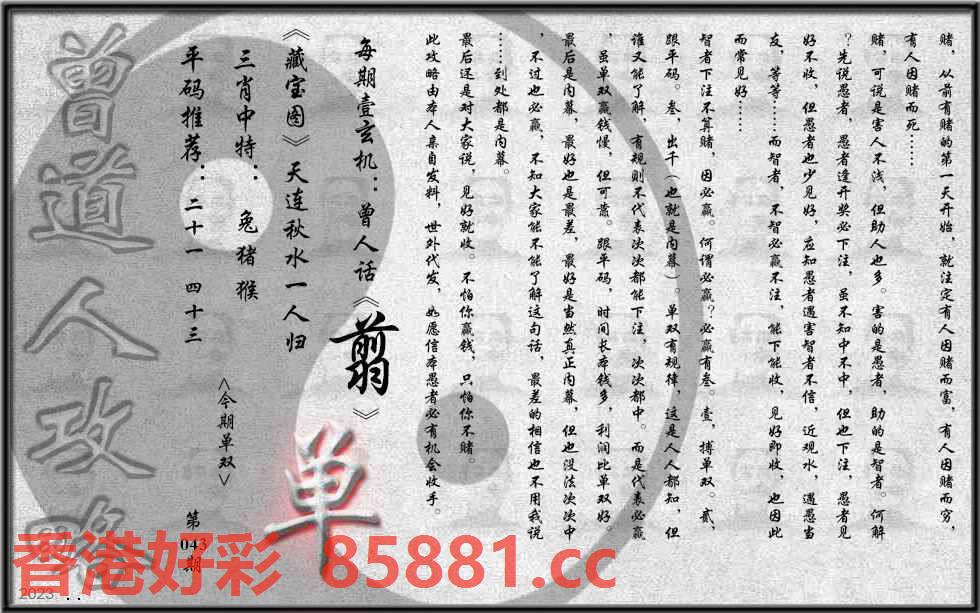 赌，从前有赌的第一天开始，就注定有人因赌而富，有人因赌而穷，
有人因赌而死……
赌，可说是害人不浅，但助人也多。害的是愚者，助的是智者。何解
？先说愚者，愚者逢开奖必下注，虽不知中不中，但也下注，愚者见
好不收，但愚者也少见好，应知愚者遇害智者不信，近观水，遇愚当
友，等等……而智者，不智必赢不注，能下能收，见好即收，也因此
而常见好……
智者下注不算赌，因必赢。何谓必赢？必赢有叁。壹，搏单双。贰，
跟平码。叁，出千（也就是内幕）。单双有规律，这是人人都知，但
谁又能了解，有规则不代表次次都能下注，次次都中。而是代表必赢
，虽单双赢钱慢，但可靠。跟平码，时间长本钱多，利润比单双好。
最后是内幕，最好也是最差，最好是当然真正内幕，但也没法次次中
，不过也必赢，不知大家能不能了解这句话，最差的相信也不用我说
……到处都是内幕。
最后还是对大家说，见好就收。不怕你赢钱，只怕你不赌。
此攻略由本人亲自发料，世外代发，如愿信本愚者必有机会收手。
每期壹玄机：曾人话《翦》
《藏宝图》天连秋水一人归
三肖中特：兔猪猴
平码推荐：二十一 四十三
<今期单双>
单
第043期
曾道人攻略
香港好彩 85881.cc
2023